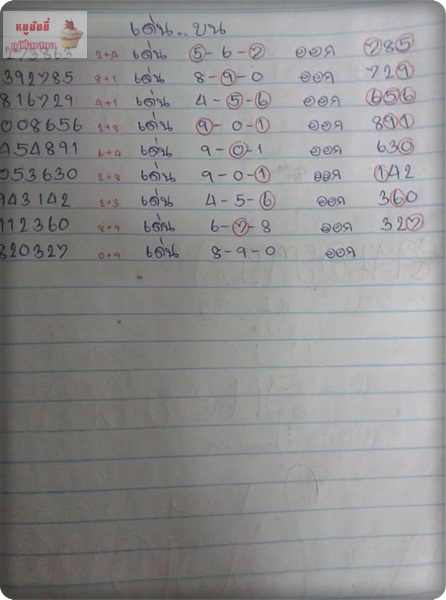 หมูบันนี้
เด่น..บน
273863 3+4 เด่น 5-6-7 ออก 785
392785 8+1 เด่น 8-9-0 ออก 729
816729 4+1 เด่น 4-5-6 ออก 656
008656 2+8 เด่น 9-0-1 ออก 891
454891 6+4 เด่น 9-0-1 ออก 630
053630 2+8 เด่น 9-0-1 ออก 142
943142 2+3 เด่น 4-5-6 ออก 360
112360 8+9 เด่น 6-7-8 ออก 327
320327 0+9 เด่น 8-9-0 ออก